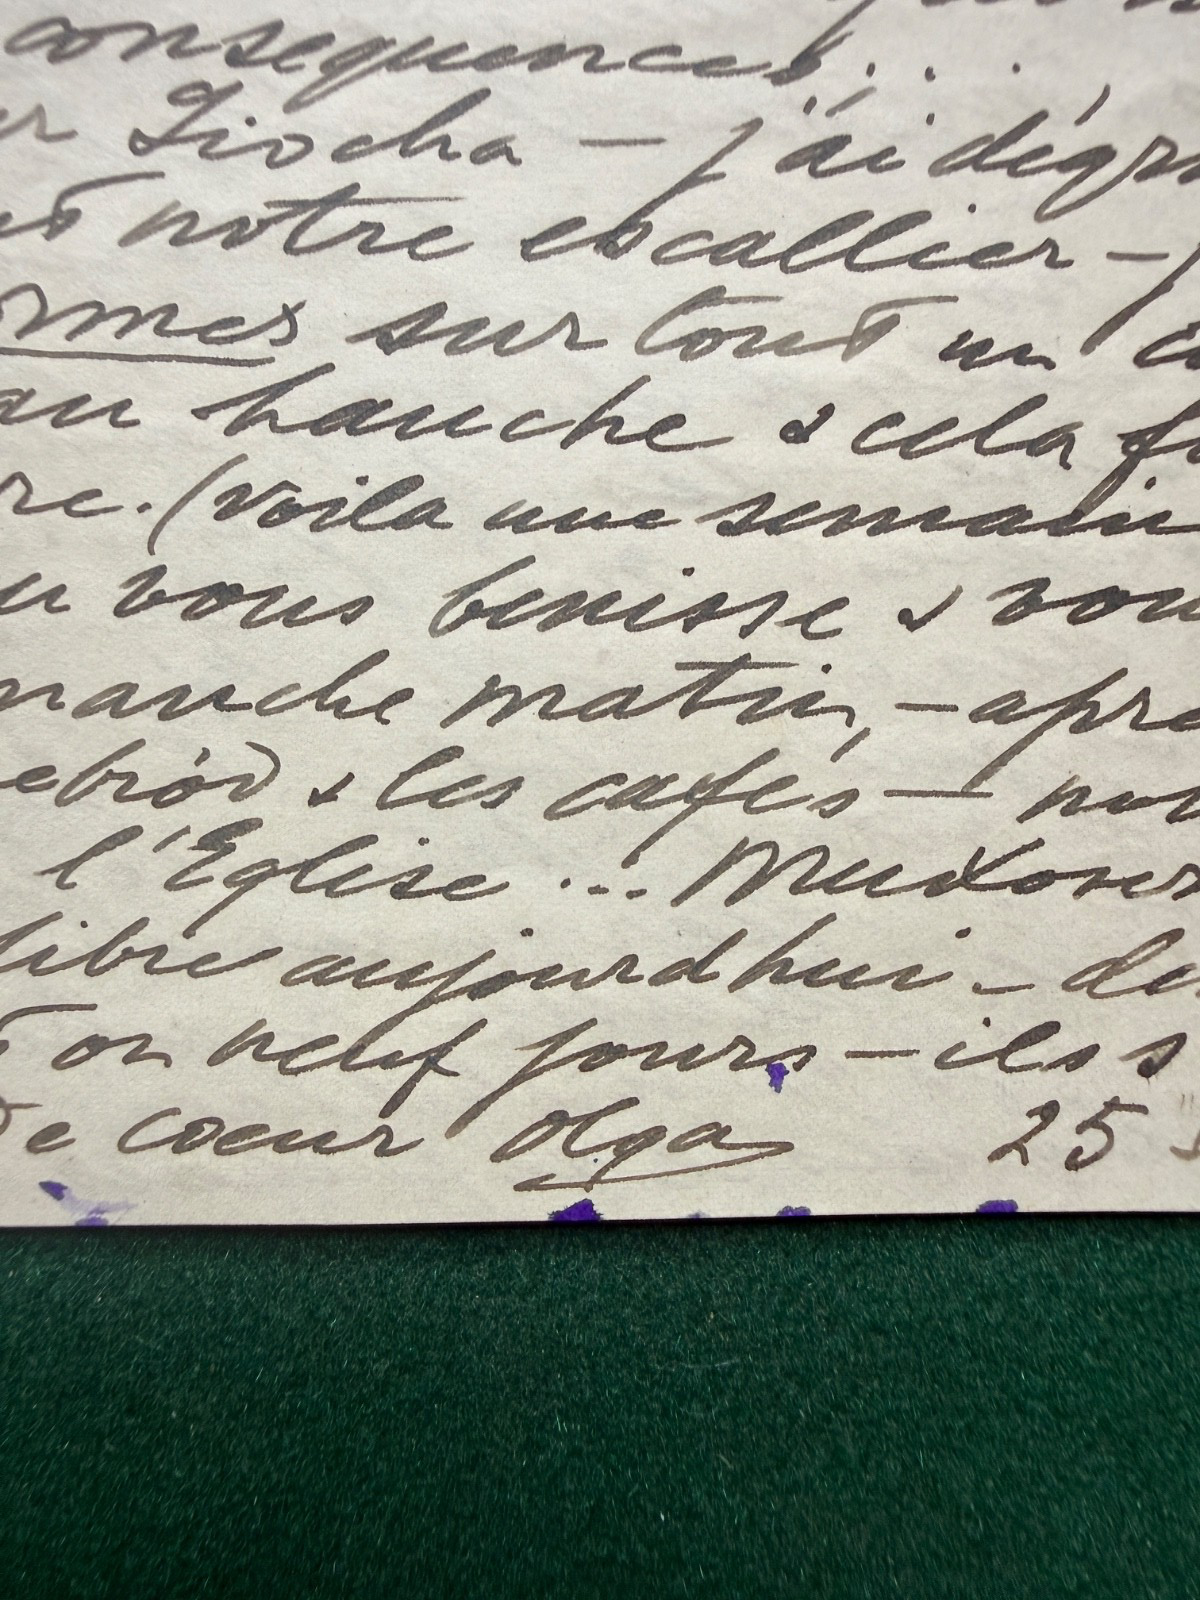 consequences, . .
r Liocha — j'ai dégr
notre escallier —
ormes sur tout un
au hanche & cela f
re. (voila une semain
u vous benisse & vou
manche matin, — apre
ebröd & les cafés — nou
l'Eglise ... 
libre aujourdhui — de
on neuf jours — ils s
de coeur Olga 25